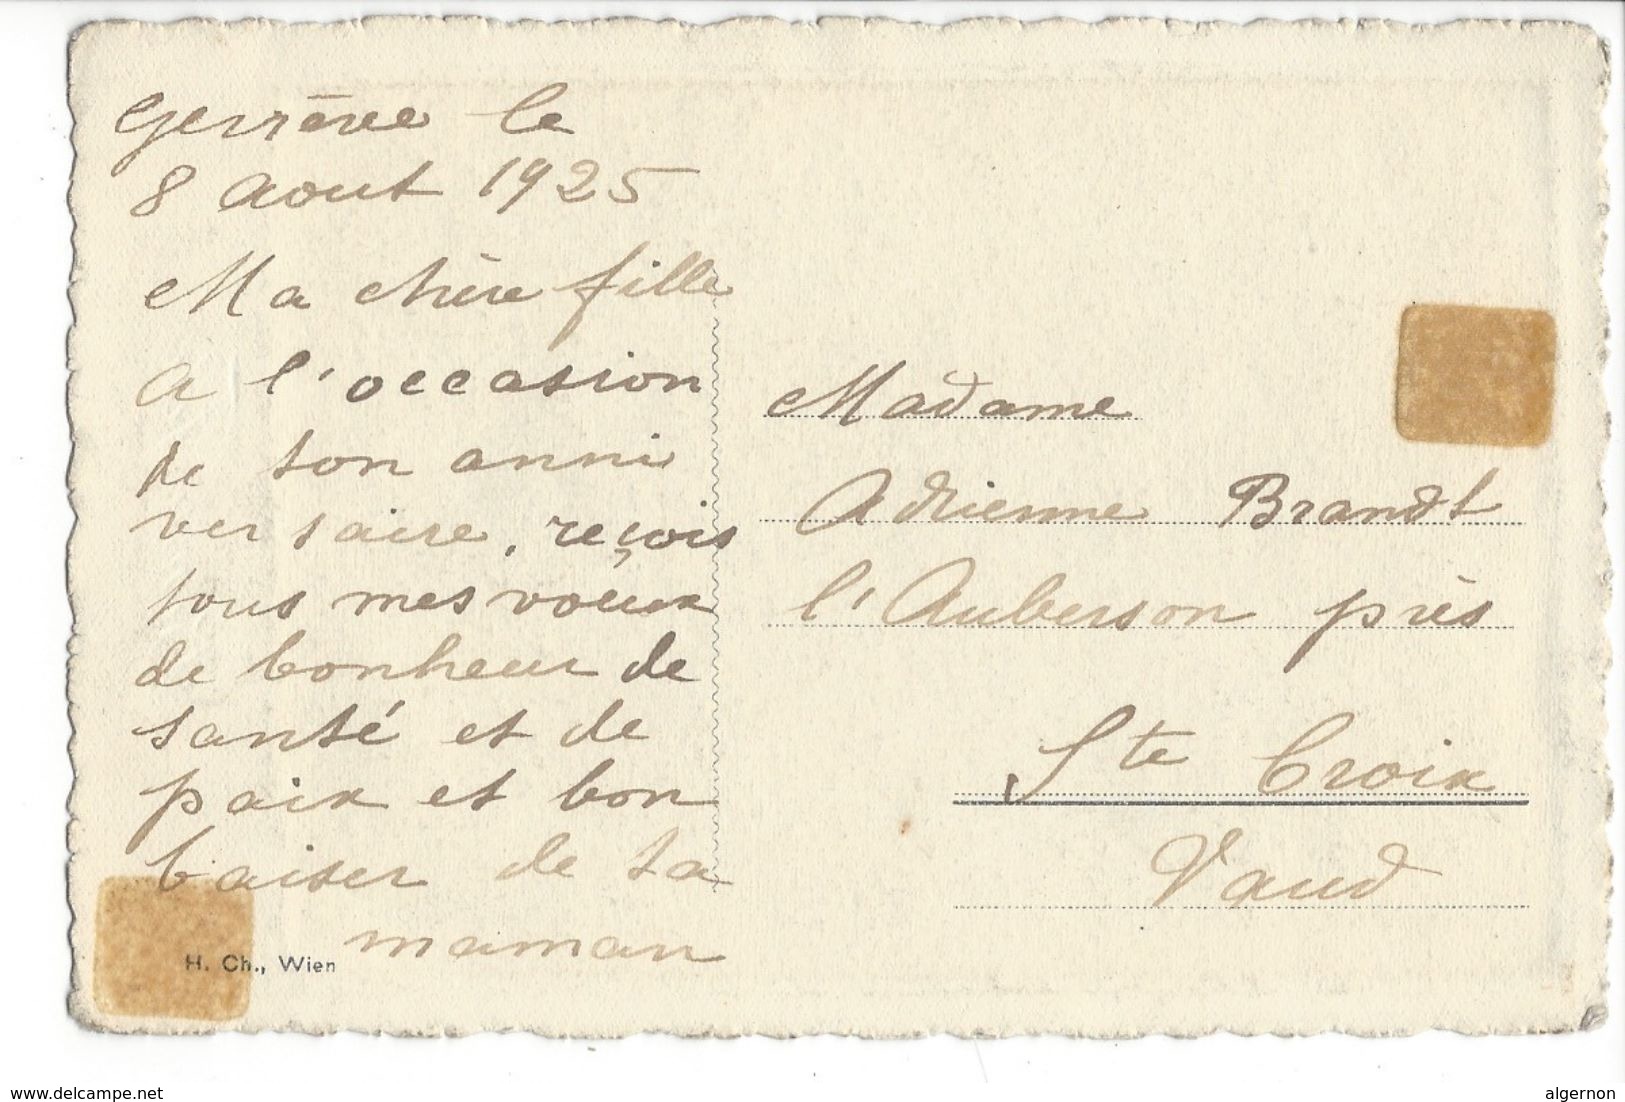 Genève le
8 Aout 1925
Ma chère fille
A l'occasion
de ton anni
versaire, reçois
tous mes voeux
de bonheur de
santé et de
paix et bon
baiser de ta
maman
H. Ch., Wien
Madame
Adrienne Brandt
l'Auberson près
Ste Croix
Vaud
www.delcampe.net
algernon